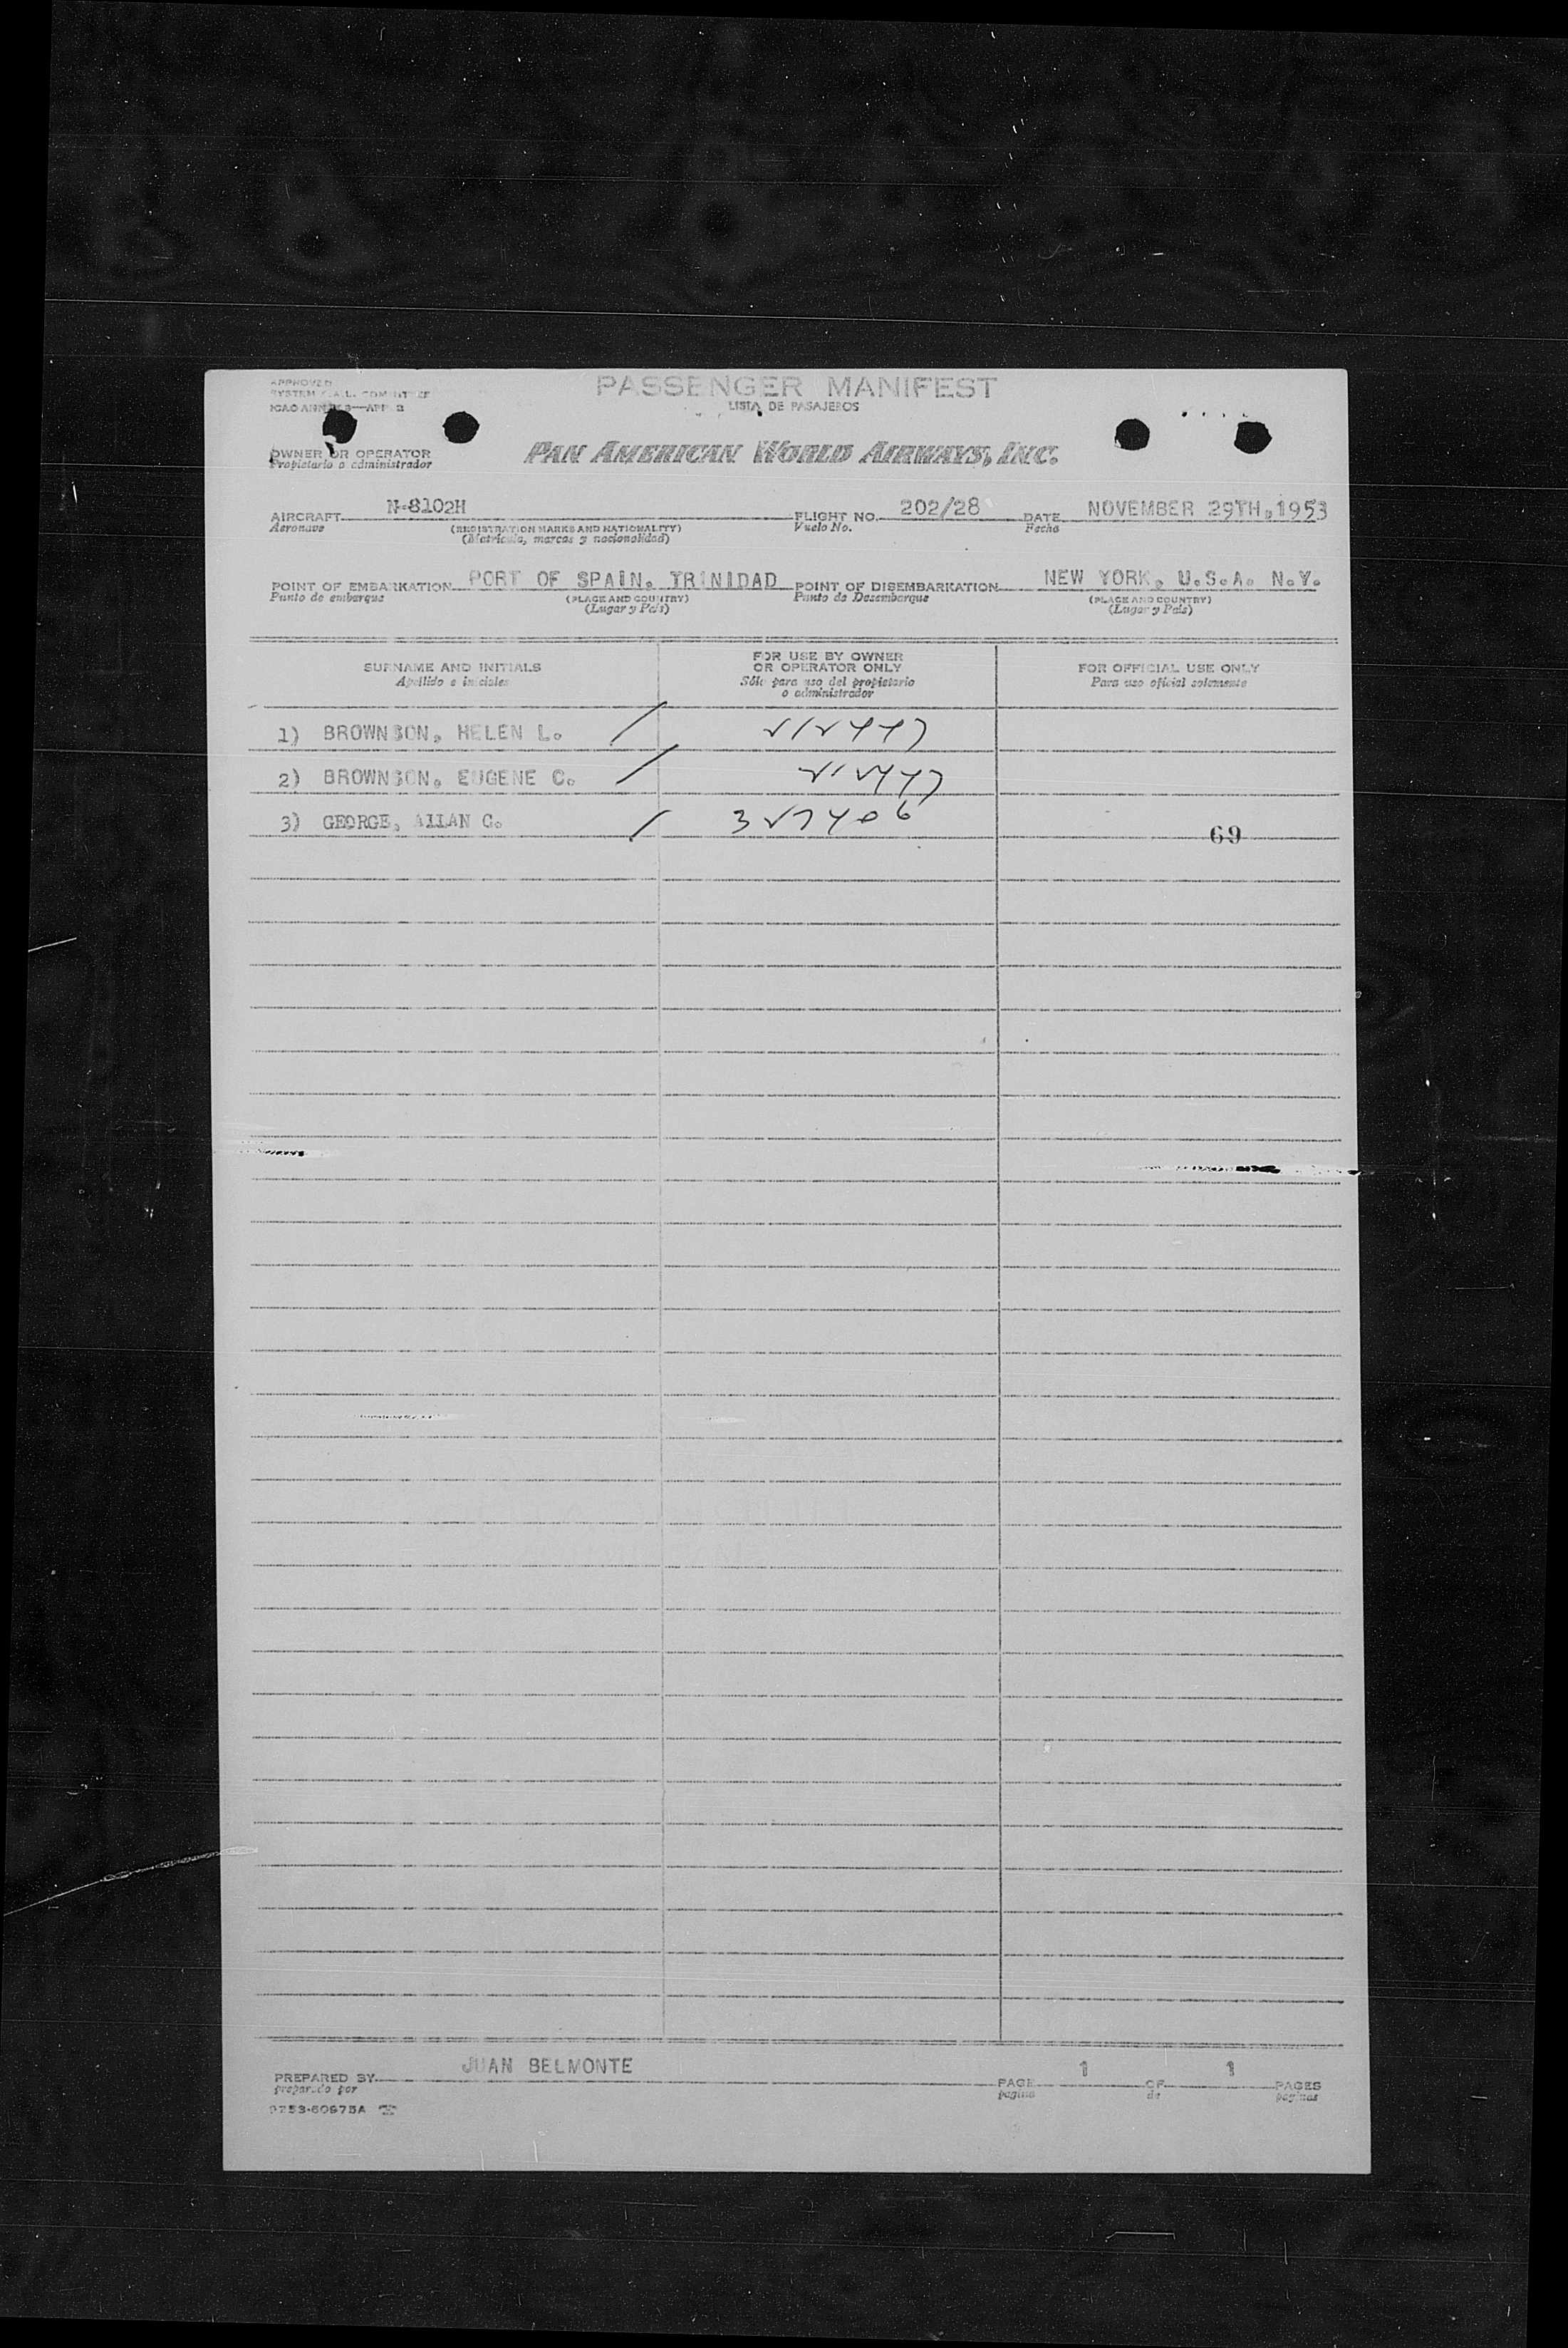 APPROVED
PASSENGER MANIFEST
LISTA DE PASAJEROS
OWNER OR OPERATOR
Propietario o administrador
PAN AMERICAN WORLD AIRWAYS, INC.
AIRCRAFT N-8102H FLIGHT NO. 202/28 DATE NOVEMBER 29TH, 1953
Aeronave (REGISTRATION MARKS AND NATIONALITY) Vuelo No. Fecha
(Matrícula, marcas y nacionalidad)
POINT OF EMBARKATION PORT OF SPAIN, TRINIDAD POINT OF DISEMBARKATION NEW YORK, U.S.A. N.Y.
Punto de embarque (PLACE AND COUNTRY) Punto de Desembarque (PLACE AND COUNTRY)
(Lugar y País) (Lugar y País)
SURNAME AND INITIALS
Apellido e iniciales
FOR USE BY OWNER
OR OPERATOR ONLY
Sólo para uso del propietario
o administrador
FOR OFFICIAL USE ONLY
Para uso oficial solamente
1) BROWNSON, HELEN L.
2) BROWNSON, EUGENE C.
3) GEORGE, ALLAN C.
69
PREPARED BY JUAN BELMONTE PAGE 1 OF 1 PAGES
preparado por pagina de paginas